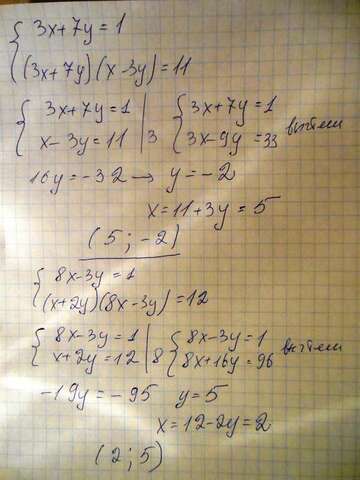 3x+7y=1
(3x+7y)(x-3y)=11
3x+7y=1 | 3x+7y=1
x-3y=11 | 3 3x-9y=33 вычтем
16y=-32 → y=-2
x=11+3y=5
(5;-2)
8x-3y=1
(x+2y)(8x-3y)=12
8x-3y=1 | 8x-3y=1
x+2y=12 | 8 8x+16y=96 вычтем
-19y=-95 y=5
x=12-2y=2
(2;5)